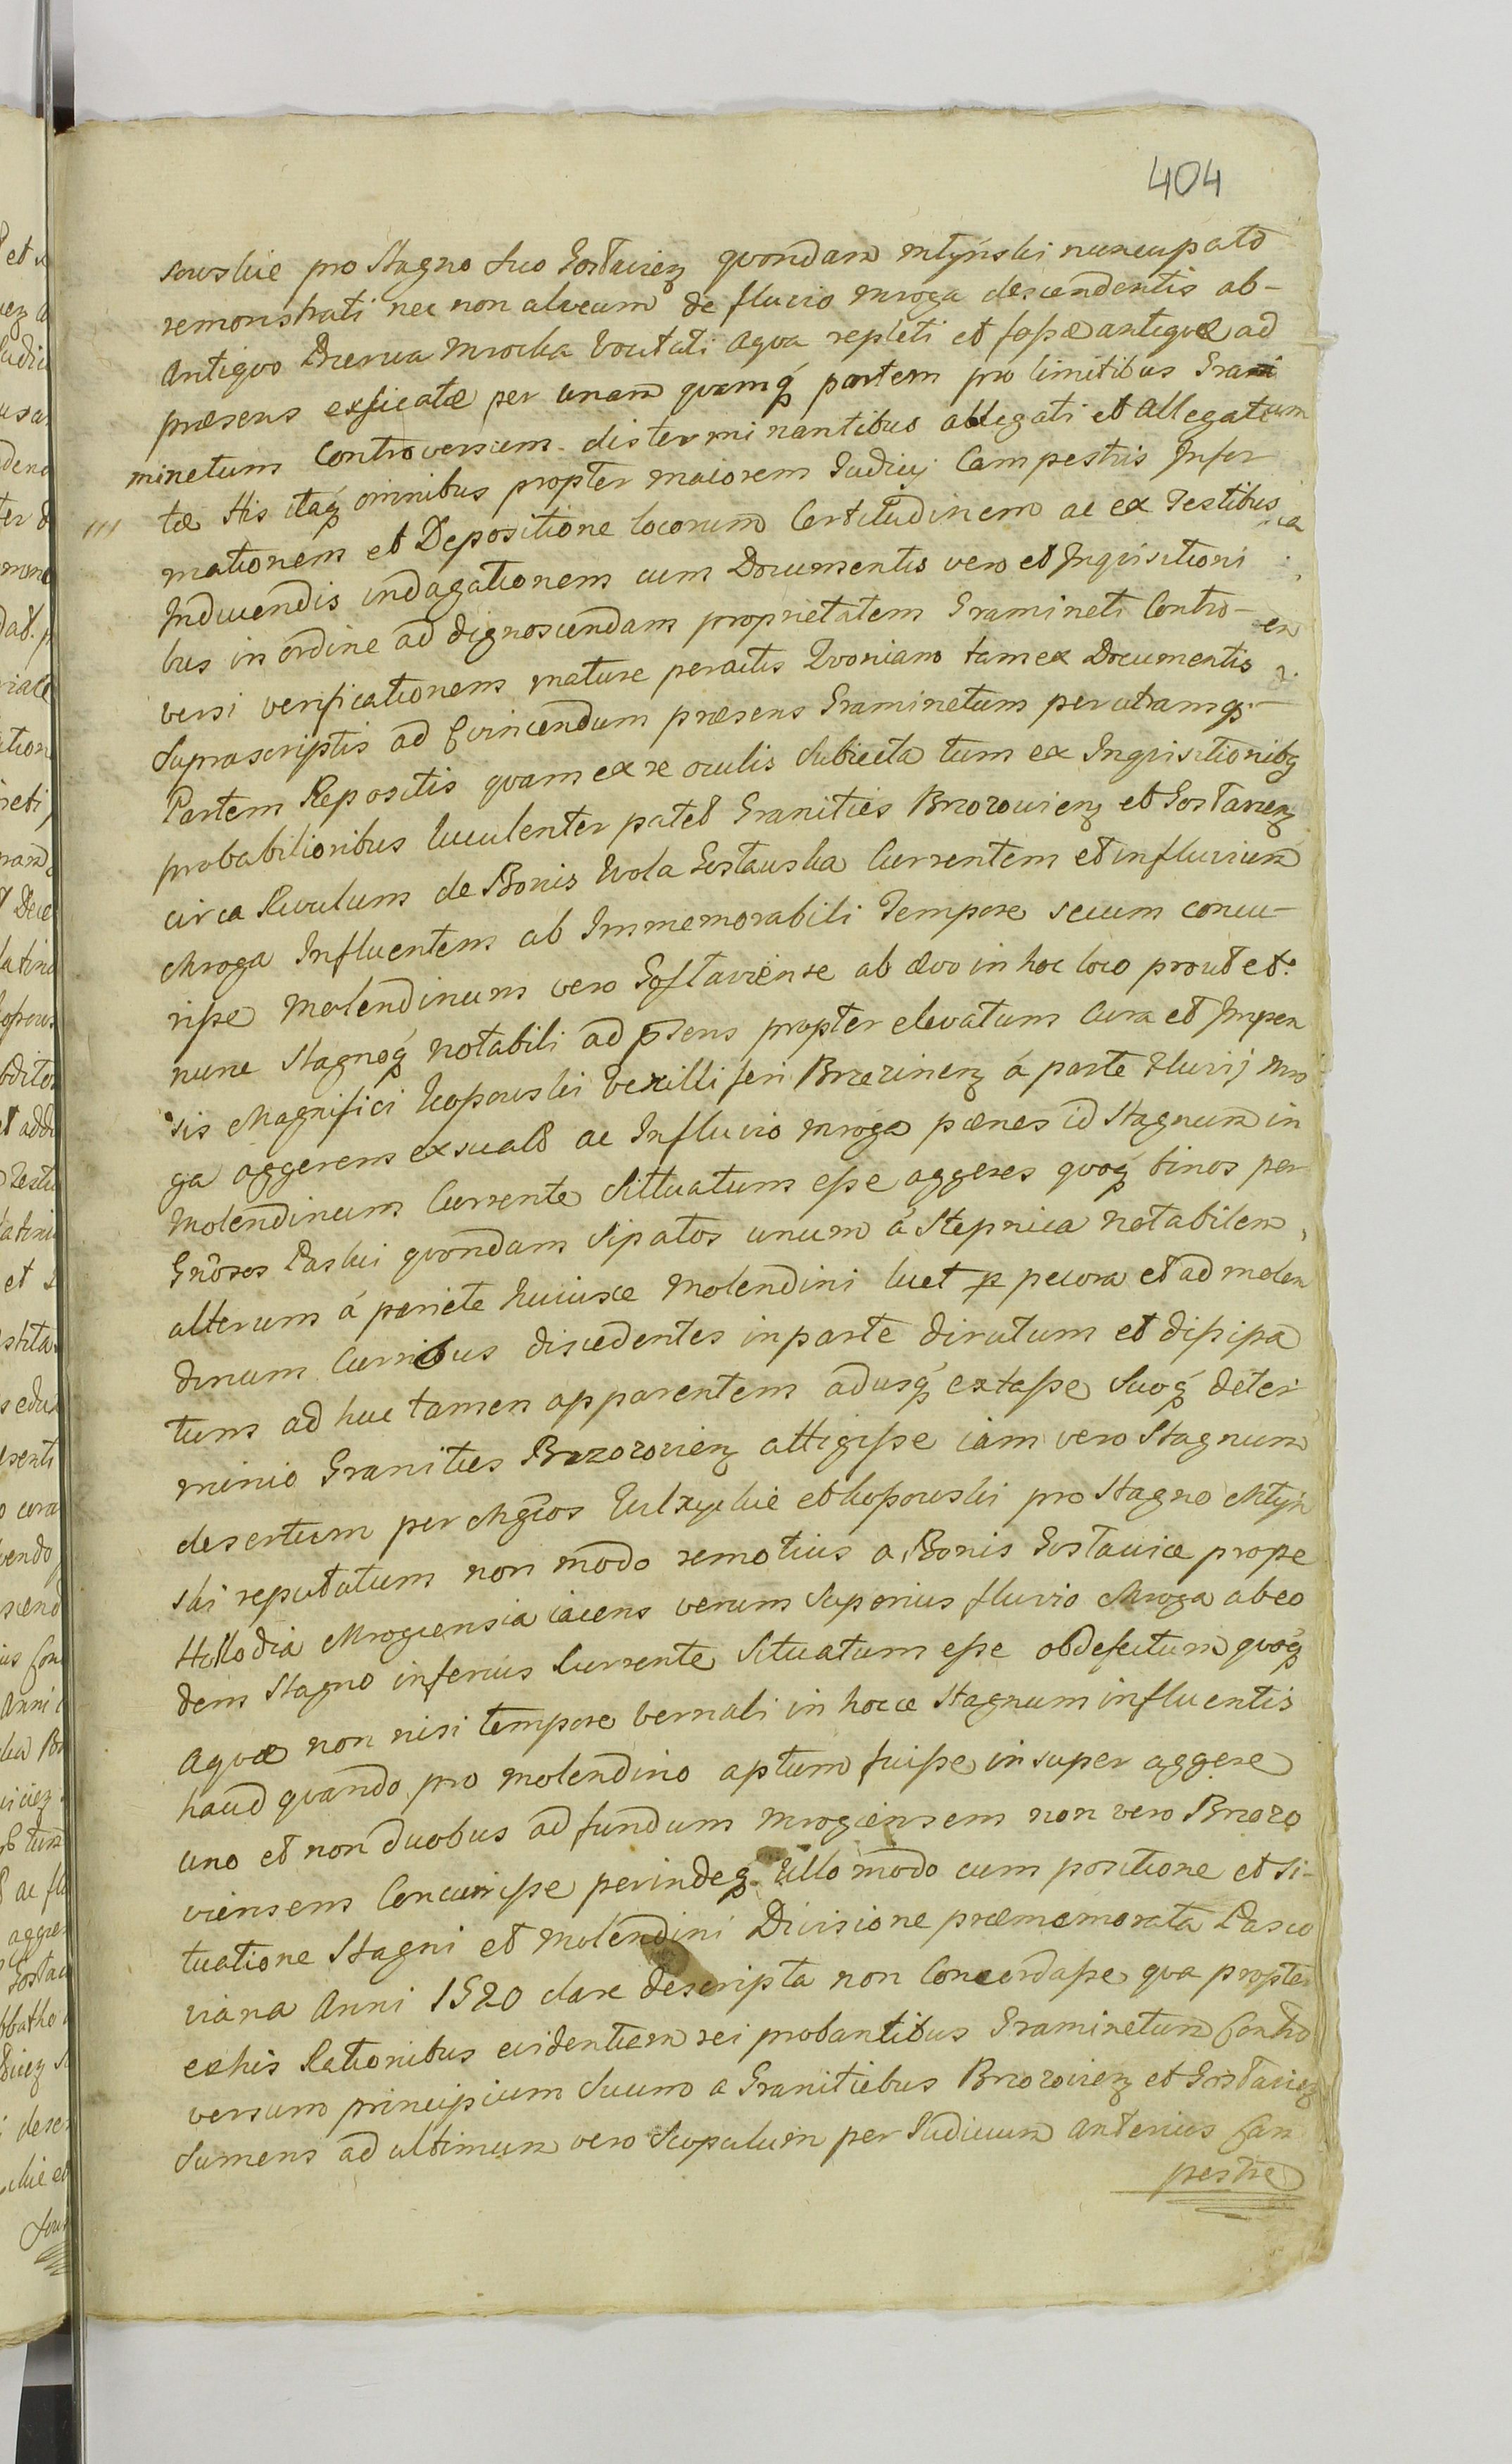 404
sowskie pro Stagno suo Gostavien̄ quondam Młyński nuncupato
remonstrati nec non alveum de fluvio Mroga descendentis ab-
antiquo Drewa Mrocka vocitati aqua repleti et fossæ antiquæ ad
præsens exsiccatæ per unam quamq́ partem pro limitibus Grami
minetum Controversum disterminantibus allegati et allegatum
tæ His itaq́ omnibus propter maiorem Judicij Campestris Infor
mationem et Depositione locorum Certitudinem ac ex Testibus
Inducendis indagationem cum Documentis vero et Inquisitioni
bus in ordine ad dignoscendam proprietatem Gramineti Contro-
versi verificationem mature peractis Quoniam tam ex Documentis
Suprascriptis ad Evincendum præsens Graminetum per utramq́
Partem Repositis quam ex re oculis Subiecta tum ex Inquisitionibq
probabilioribus luculenter patet Granities Brzozovien̄ et Gostavien̄
circa Rivulum de Bonis Wola Gostawska Currentem et influvium
Mroga Influentem ab Immemorabili Tempore secum concu-
risse Molendinum vero Gostaviense ab ævo in hoc loco prout et
nunc Stagnoq́ notabili ad p̄sens propter elevatum Cura et Impen
sis Magnifici Koposwski Vexilliferi Brzezinen̄ á parte Fluvij Mro
ga aggerem exscatet ac Influvio Mroga pænes id Stagnum in
Molendinum Currente Sittuatum esse aggeres quoq́ binos per
Gn̄osos Laski quondam Sipatos unum á Stepnica notabilem,
alterum á pariete huiusce Molendini licet p pecora et ad molen
dinum Curribus discedentes in parte dirutum et dissipa
tum ad huc tamen apparentem adusq́ extasse Suoq́ deter
minio Granities Brzozovien̄ attigisse iam vero Stagnum
desertum per Mg̅cos et Kopowski pro Stagno Młyń
ski reputatum non modo remotius a Bonis Gostavice prope
Mrogiensia iacens verum Superius fluvio Mroga ab eo
dem Stagno inferius Currente Situatum esse ob defectum quoq́
aquæ non nisi tempore vernali in hocce Stagnum influentis
haud quando pro molendino aptum fuisse insuper aggere
uno et non duobus ad fundum Mrogiensem non vero Brzozo
viensem Concurrisse perindeq́ Ullo modo cum positione et Si-
tuatione Stagni et Molendini Divisione præmemorata Lasco
viana Anni 1520 clare descripta non Concordasse qua propter
ex his Rationibus evidentiem rei probantibus Graminetum Contro
versum principium Suum a Granitiebus Brzozovien̄ et Gostavien̄
Sumens ad ultimum vero Scopulum per Judicium anterius Cam
pestre